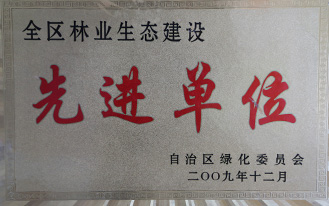 全区林业生态建设
先进单位
自治区绿化委员会
二〇〇九年十二月